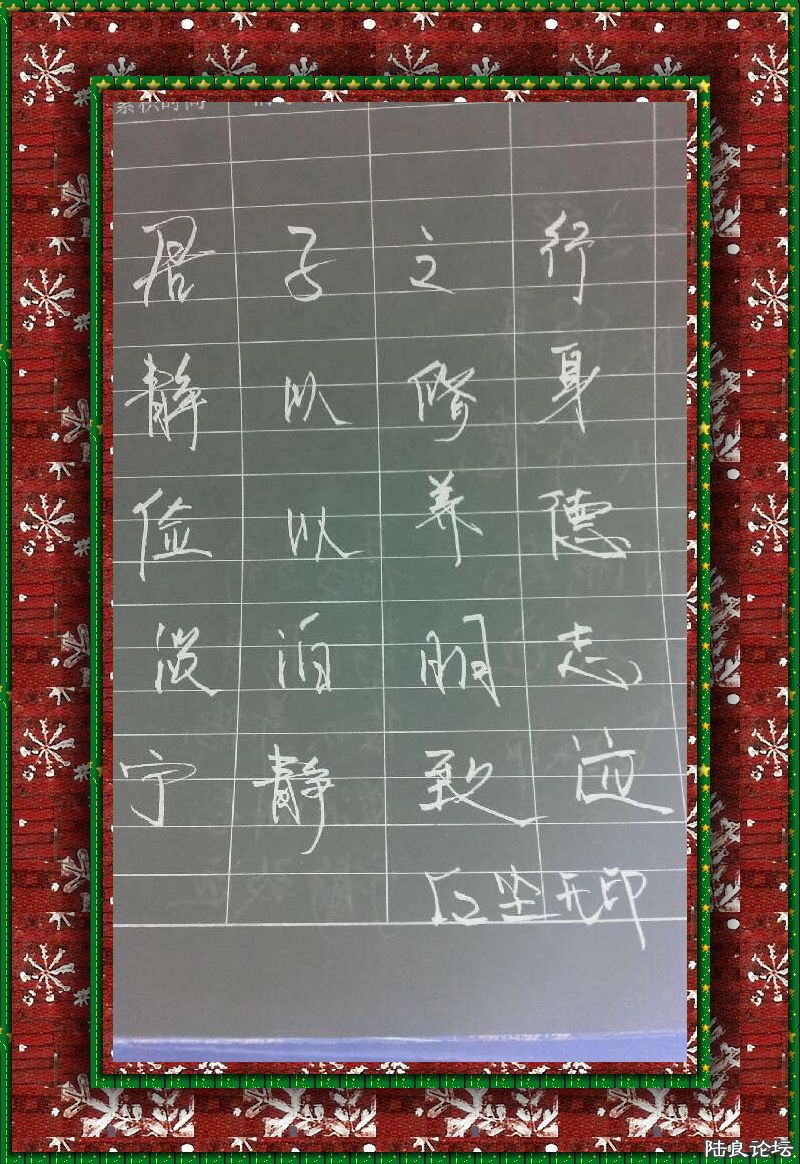 君子之行
静以修身
俭以养德
淡泊明志
宁静致远
红尘无印
陆良论坛